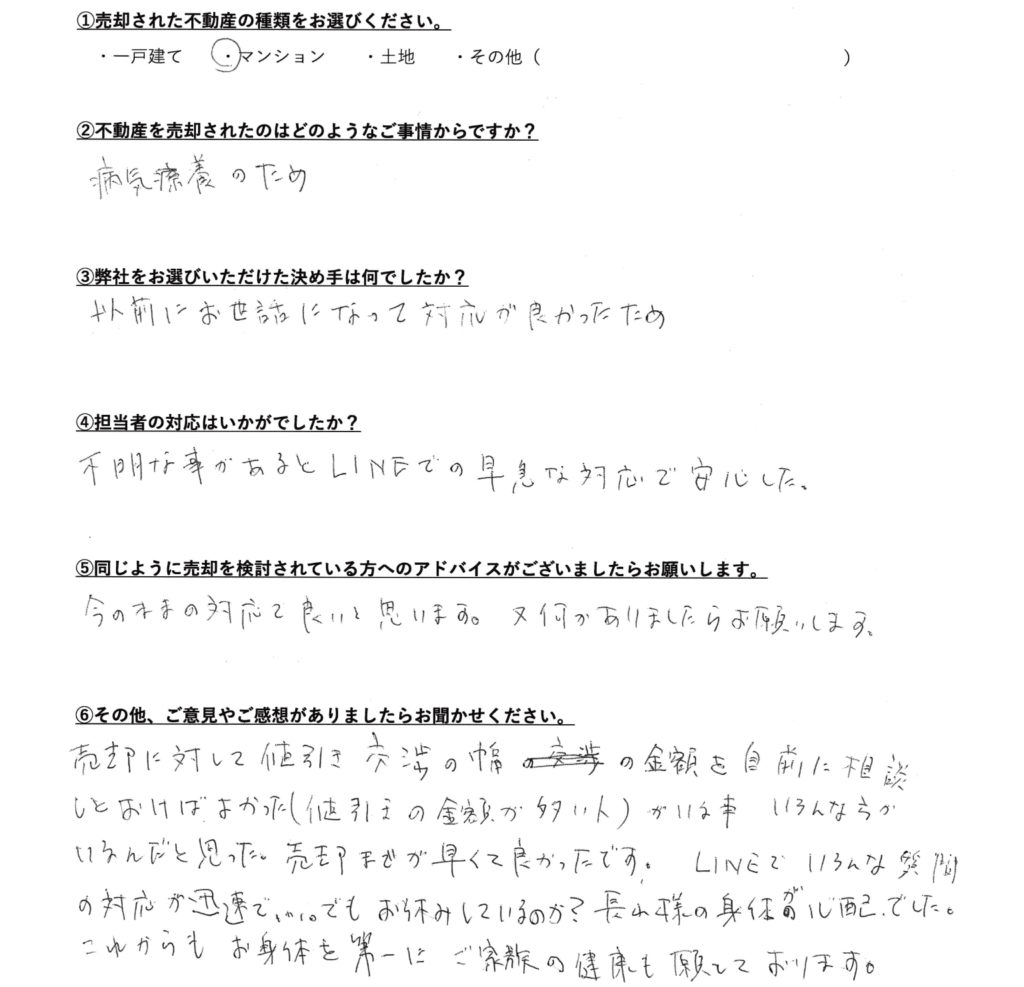 ①売却された不動産の種類をお選びください。
・一戸建て ・マンション ・土地 ・その他（ ）
②不動産を売却されたのはどのようなご事情からですか？
病気療養のため
③弊社をお選びいただけた決め手は何でしたか？
以前にお世話になって対応が良かったため
④担当者の対応はいかがでしたか？
不明な事があるとLINEでの早急な対応で安心した。
⑤同じように売却を検討されている方へのアドバイスがございましたらお願いします。
今のままの対応で良いと思います。又何かありましたらお願いします。
⑥その他、ご意見やご感想がありましたらお聞かせください。
売却に対して値引き交渉の幅の金額を自前に相談
しとおけばよかった(値引きの金額が多い人)がいる事 いろんな方が
いるんだと思った。売却までが早くて良かったです。 LINEでいろんな質問
の対応が迅速で、、、。でもお休みしているのか？長山様の身体が心配でした。
これからもお身体を第一にご家族の健康も願っております。